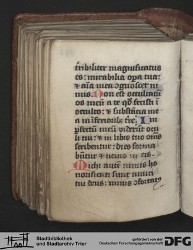 tribiliter magnificatus
es: mirabilia opa tua:
et aīa mea cognoscet ni
mis. Non est occultatū
os meū a te qd fecisti ī
occulto: et substācia me
a in īferioribꝰ tre. In
pfectū meū viderūt oculi
tui: et in libro tuo oīnes
scribentur: dies forma
būtur et nemo in eis.
Michi autē nimis ho
norificati sunt amici
tui deus: nimis
Stadtbibliothek
und Stadtarchiv Trier
gefördert von der
Deutschen Forschungsgemeinschaft
DFG